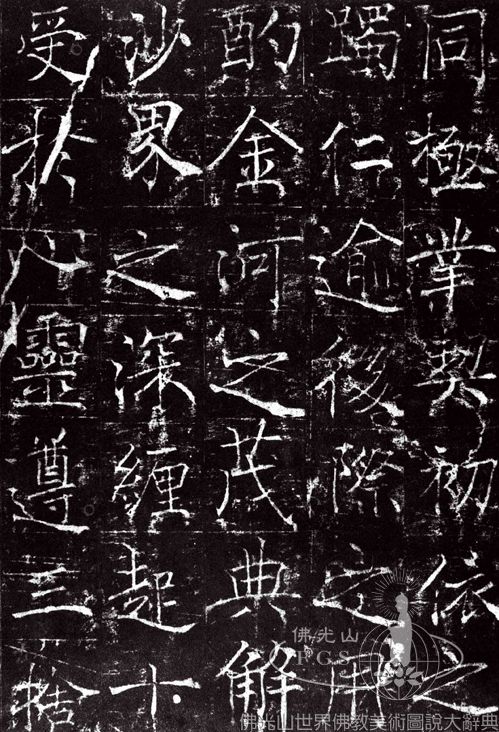 同極業契初依之
躅仁逾後際定用
酌金河之茂典解
沙界之深纏起十
受於八靈遵三括
佛光山
F.G.S
佛光山世界佛教美術圖說大辭典